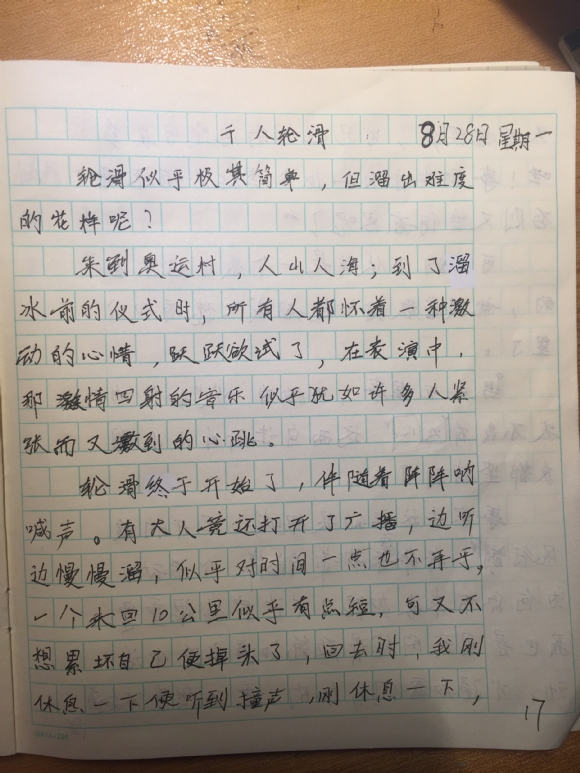 千人轮滑 8月28日 星期一
轮滑似乎极其简单，但溜出难度
的花样呢？
来到奥运村，人山人海；到了溜
冰前的仪式时，所有人都怀着一种激
动的心情，跃跃欲试了，在表演中，
那激情四射的音乐似乎犹如许多人紧
张而又激到的心跳。
轮滑终于开始了，伴随着阵阵呐
喊声。有大人竟还打开了广播，边听
边慢慢溜，似乎对时间一点也不再乎。
一个来回10公里似乎有点短，可又不
想累坏自己便掉头了，回去时，我刚
休息一下便听到撞声，刚休息一下，
17